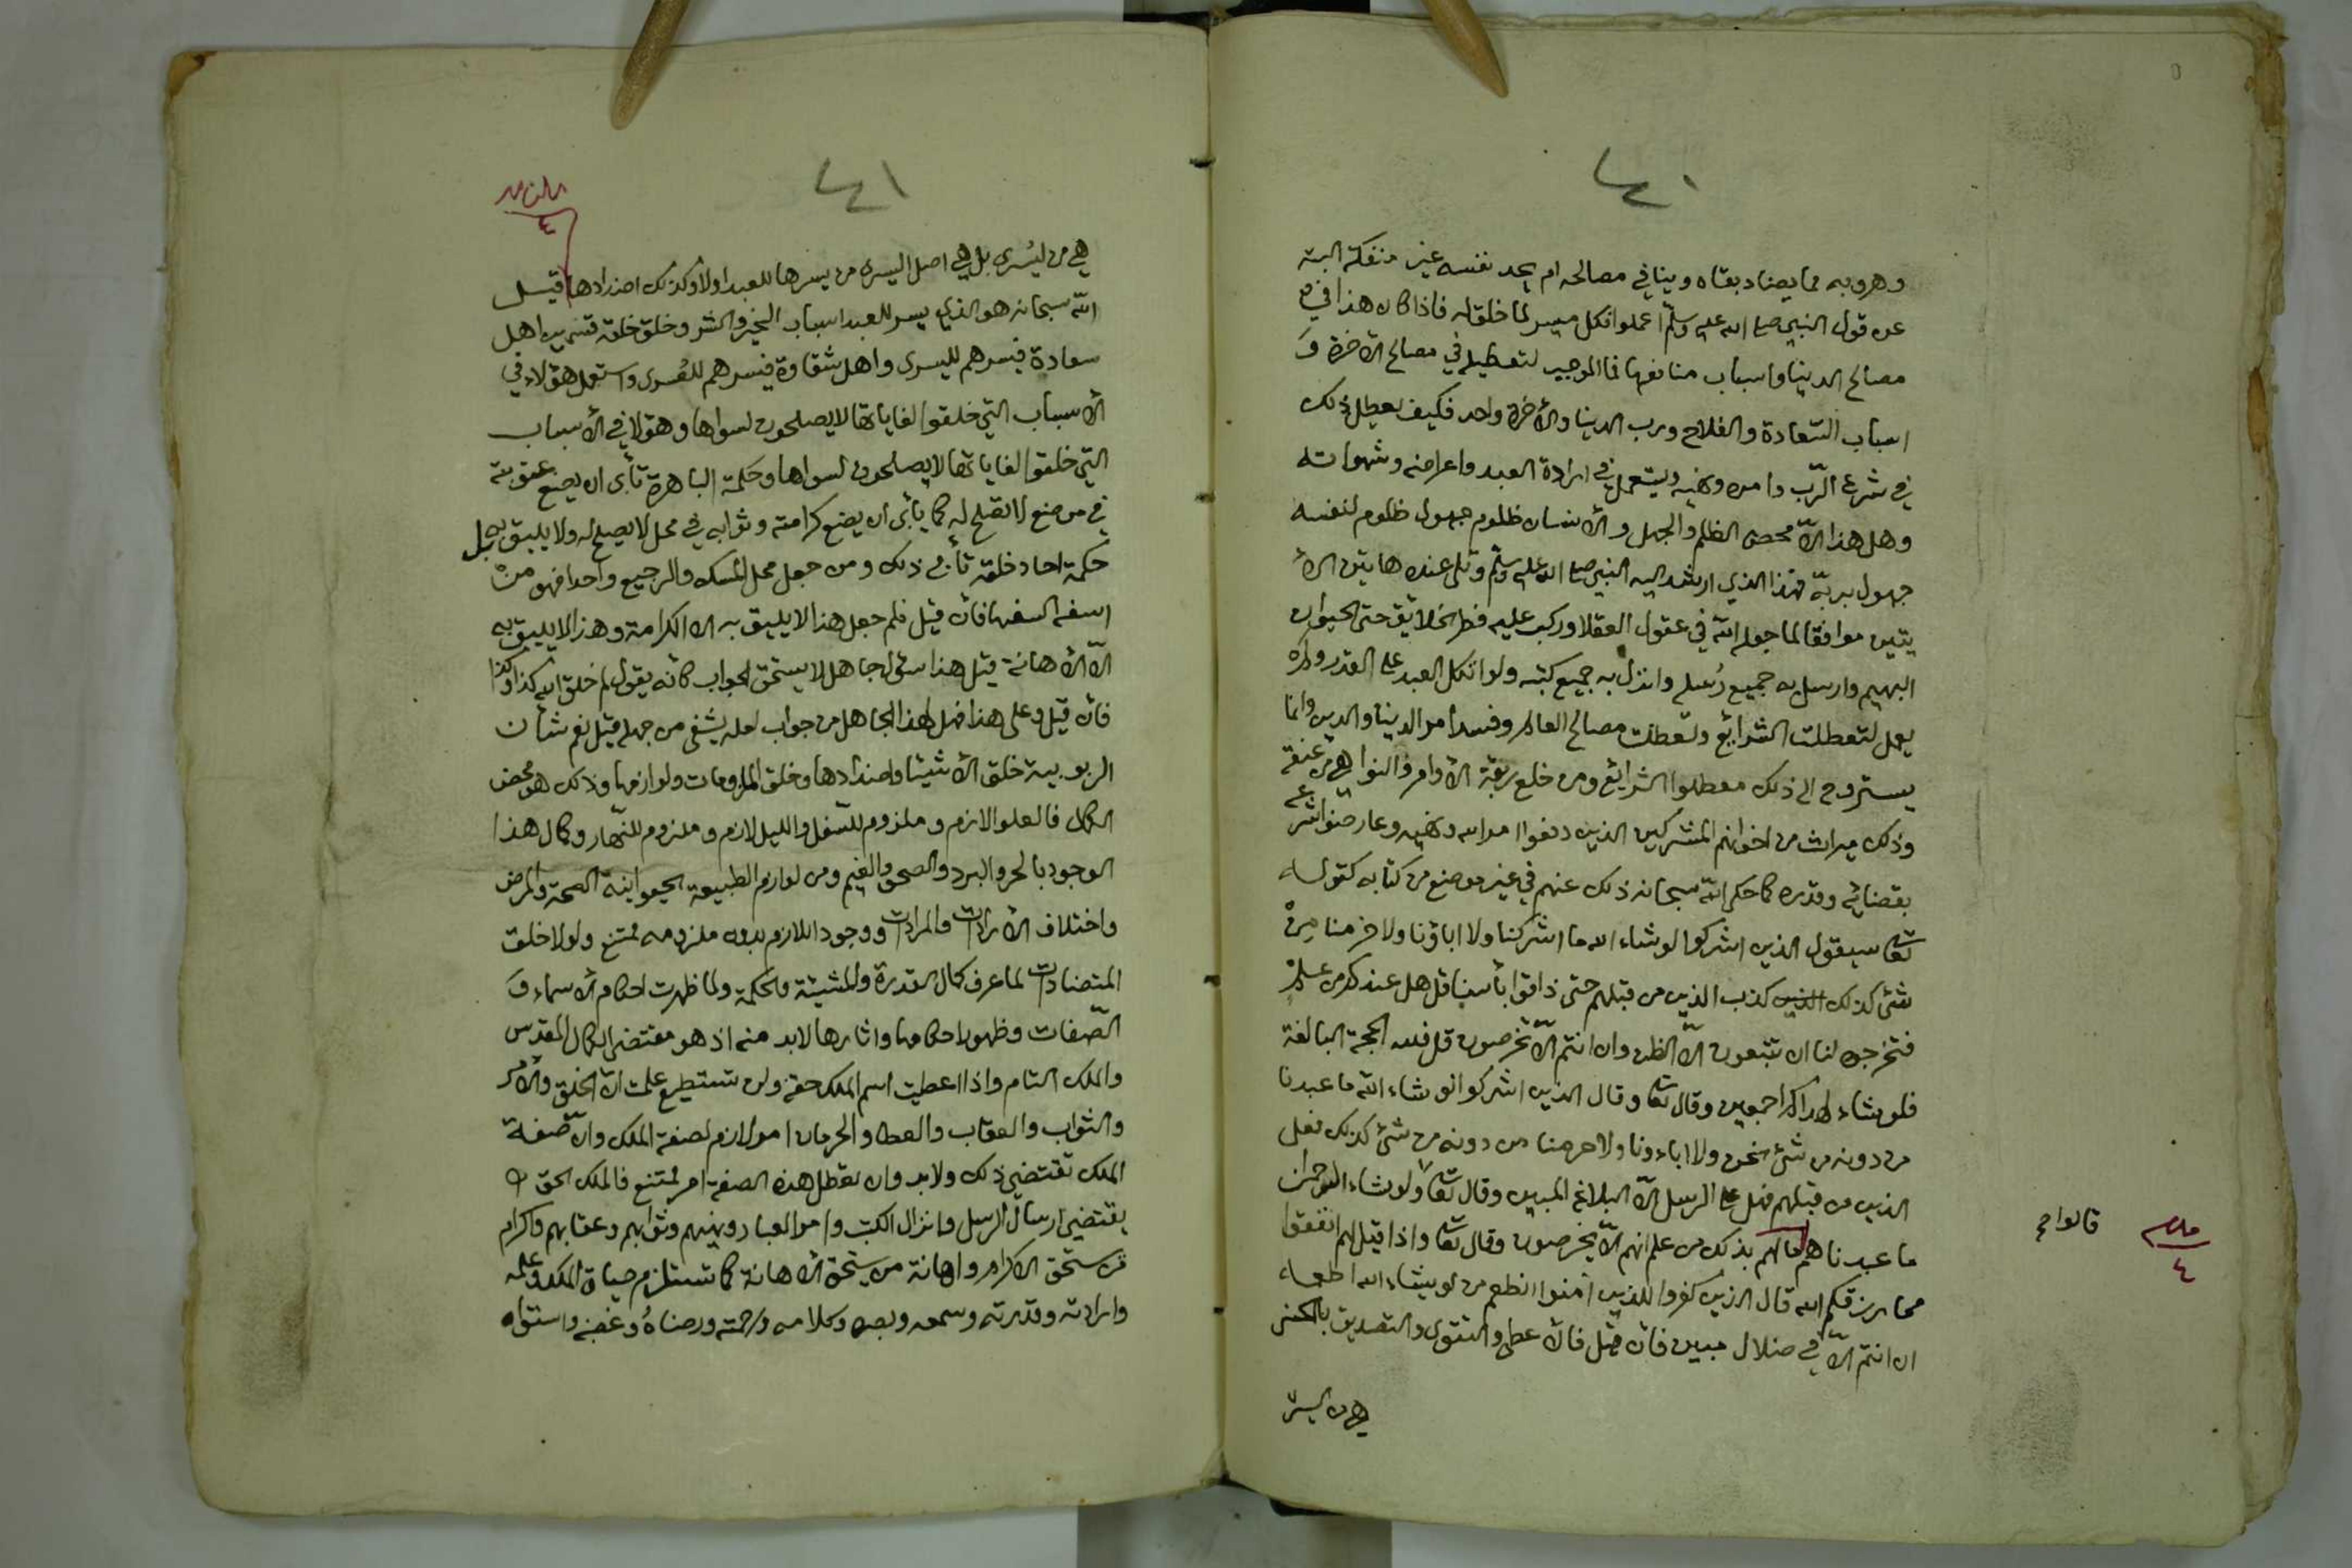 ٤٠
وهروبه مما يضاد بقاه وينافي مصالحه ام يجد نفسه غير منفكة البتة
عن قول النبي صلى الله عليه وسلم اعملوا فكل ميسر لما خلق له فاذا كان هذا في
مصالح الدنيا واسباب منافعها فما الموجب لتعطيله في مصالح الآخرة و
اسباب السّعادة والفلاح ورب الدنيا والآخرة واحد فكيف يعطل ذلك
في شرع الرّب وامره ونهيه ويستعمل في ارادة العبد واعراضه وشهواته
وهل هذا الّا محض الظلم والجهل والانسان ظلوم جهول ظلوم لنفسه
جهول بربّه فهذا الذي ارشد اليه النبي صلى الله عليه وسلم وتلى عنده هاتين الآ
يتين موافقا لما جعله الله في عقول العقلا وركب عليه فطر الخلائق حتى الحيوان
البهيم وارسل به جميع رُسله وانزل به جميع كتبه ولو اتكل العبد على القدر ولم
يعمل لتعطلت الشرائع وتعطلت مصالح العالم وفسد أمر الدنيا والدين وانما
يستروح الى ذلك معطلوا الشرائع ومن خلع ربقة الأوامر والنواهي من عنقه
وذلك ميراث من اخوانهم المشركين الذين دفعوا امر الله ونهيه وعارضوا شرعه
بقضائه وقدره كما حكى الله سبحانه ذلك عنهم في غير موضع من كتابه كقوله
تعا سيقول الذين اشركوا لو شاء الله ما اشركنا ولا اباؤنا ولا حرمنا مِنْ
شئ كذلك الذين كذب الذين من قبلهم حتى ذاقوا بأسنا قل هل عندكم من علم
فتخرجوه لنا ان تتبعون الّا الظن وان انتم الّا تخرصون قل فلله الحجة البالغة
فلو شاء لهداكم اجمعين وقال تعا وقال الذين اشركوا لو شاء الله ما عبدنا
من دونه من شئ نحن ولا اباءونا ولا حرمنا من دونه من شئ كذلك فعل
الذين من قبلهم فهل على الرسل الّا البلاغ المبين وقال تعا ولو شاء الرحمن
ما عبدناهم مالهم بذلك من علم انهم الّا يخرصون وقال تعا واذا قيل لهم انفقوا
قالوا صح
٤
مما يرزقكم الله قال الذين كفروا للذين آمنوا انطعم من لو يشاء الله اطعمه
ان انتم الّا في ضلال مبين فان قيل فالاعطى والتقوى والتصديق بالحسنى
هي من اليسر
٤١
٤
هي من ليُسرى بل هي اصل اليسرى من يسرها للعبد اولا وكذلك اضدادها قيل
الله سبحانه هو الذي يسر للعبد اسباب الخير والشر وخلق خلقه قسمين اهل
سعادة فيسرهم لليسرى واهل شقاوة فيسرهم للعُسرى واستعمل هؤلاء في
الأسباب التي خلقوا لغاياتها لا يصلحون لسواها وهؤلا في الأسباب
التي خلقوا لغاياتها لا يصلحون لسواها وحكمته الباهرة تأبى ان يضع عقوبته
في موضع لا تصلح له كما يأبى ان يضع كرامته وثوابه في محل لا يصلح له ولا يليق به بل
حكمة احاد خلقه تأبى ذلك ومن جعل محل المسك والرجيع واحدا فهو منْ
اسفه السفها فان قيل فلم جعل هذا لا يليق به الا الكرامة وهذا لا يليق به
الّا الأهانة قيل هذا سؤال جاهل لا يستحق الجواب كانه يقول لم خلق الله كذا وكذا
فان قيل وعلى هذا فهل لهذا الجاهل من جواب لعله يشفى من جهله قيل نعم شأن
الربوبية خلق الأشيئا واضدادها وخلق الملزومات ولوازمها وذلك هو محض
الكمال فالعلو لازم وملزوم للسّفل والليل لازم وملزوم للنّهار وكمال هذا
الوجود بالحر والبرد والصحو والغيم ومن لوازم الطبيعة الحيوانية الصحة والمرض
واختلاف الأرادات والمرادات ووجود اللازم بدون ملزومه ممتنع ولولا خلق
المتضادات لما عرف كمال القدرة والمشيئة والحكمة ولما ظهرت احكام الأسماء و
الصّفات وظهور احكامها واثارها لابد منه اذ هو مقتضى الكمال المقدس
والملك التام واذا اعطيت اسم الملك حقه ولن تستطيع علمت انّ الخلق والأمر
والثواب والعقاب والعطا والحرمان امر لازم لصفة الملك وانّ صفة
الملك تقتضي ذلك ولابد وان تعطل هذه الصفة امر ممتنع فالملك الحق
يقتضى ارسال الرسل وانزال الكتب وامر العباد ونهيهم وثوابهم وعقابهم واكرام
من يستحق الاكرام واهانة من يستحق الأهانة كما تستلزم حياة الملك وعلمه
وارادته وقدرته وسمعه وبصره وكلامه ورحمته ورضاهُ وغضبه واستواه